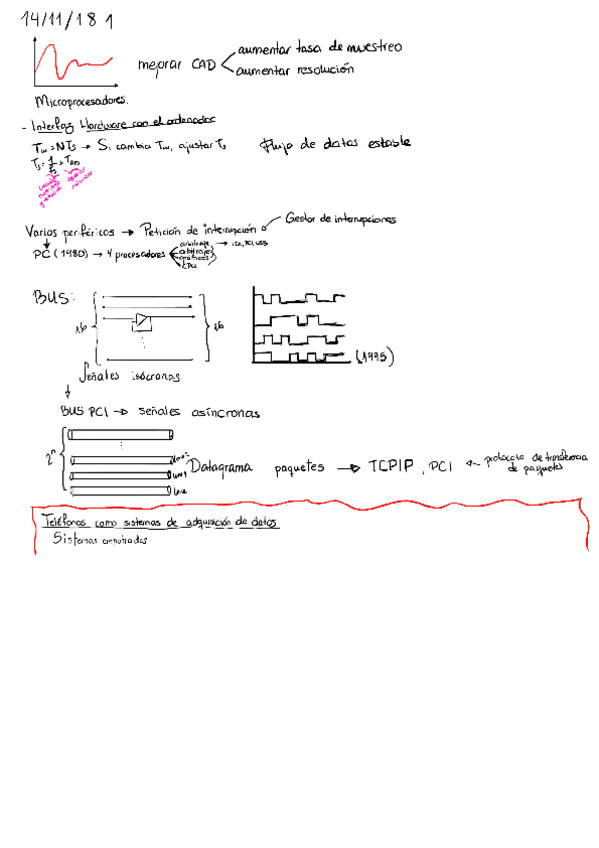 14/11/18 1
mejorar CAD
aumentar tasa de muestreo
aumentar resolución
Microprocesadores.
- Interfaz Hardware con el ordenador
Tw = NTs → Si cambia Tw, ajustar Ts
Flujo de datos estable
Varios periféricos → Petición de interrupción
Gestor de interrupciones
PC (1980) → 4 procesadores
arbitraje
arbitraje
gráficos
CPU
BUS:
16
16
(1995)
Señales isócronas
BUS PCI → señales asíncronas
2ⁿ
Datagrama
paquetes → TCPIP, PCI ← protocolo de transferencia
de paquetes
Teléfonos como sistemas de adquisición de datos
Sistemas empotrados